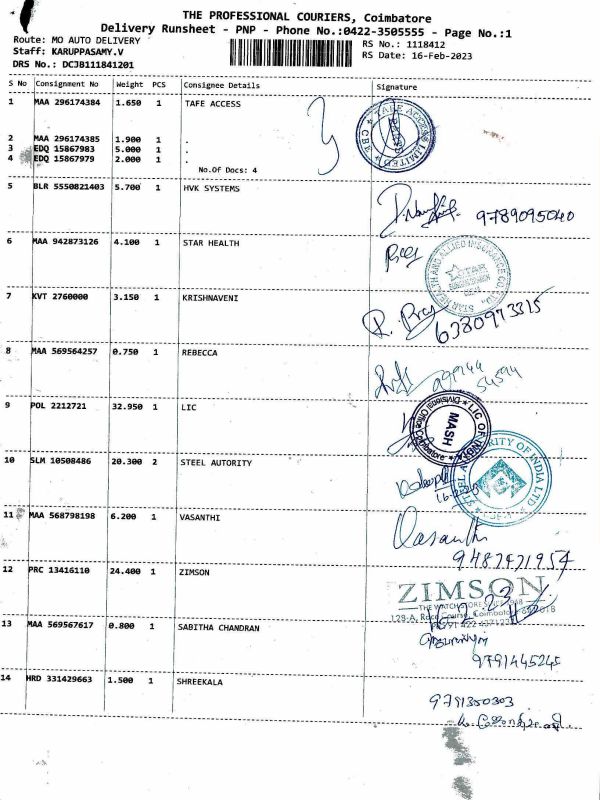 THE PROFESSIONAL COURIERS, Coimbatore
Delivery Runsheet - PNP - Phone No.:0422-3505555 - Page No.:1
Route: MO AUTO DELIVERY
RS No.: 1118412
Staff: KARUPPASAMY.V
RS Date: 16-Feb-2023
DRS No.: DCJB111841201
S No Consignment No Weight PCS Consignee Details Signature
1 MAA 296174384 1.650 1 TAFE ACCESS
TAFE ACCESS LIMITED
2 MAA 296174385 1.900 1 .
3 EDQ 15867983 5.000 1 .
4 EDQ 15867979 2.000 1 .
No.Of Docs: 4
5 BLR 5550821403 5.700 1 HVK SYSTEMS
9789095040
6 MAA 942873126 4.100 1 STAR HEALTH
STAR HEALTH AND ALLIED INSURANCE CO. LTD.
STAR
7 KVT 2760000 3.150 1 KRISHNAVENI
6380973315
8 MAA 569564257 0.750 1 REBECCA
9 POL 2212721 32.950 1 LIC
LIC OF INDIA
Divisional Office Coimbatore
MASH
10 SLM 10508486 20.300 2 STEEL AUTORITY
STEEL AUTHORITY OF INDIA LTD
11 MAA 568798198 6.200 1 VASANTHI
Vasanthi
9487471957
12 PRC 13416110 24.400 1 ZIMSON
ZIMSON
THE WATCH STORE SINCE 1948
128-A, Race Course, Coimbatore - 641018
13 MAA 569567617 0.800 1 SABITHA CHANDRAN
9791445245
14 HRD 331429663 1.500 1 SHREEKALA
9791350303